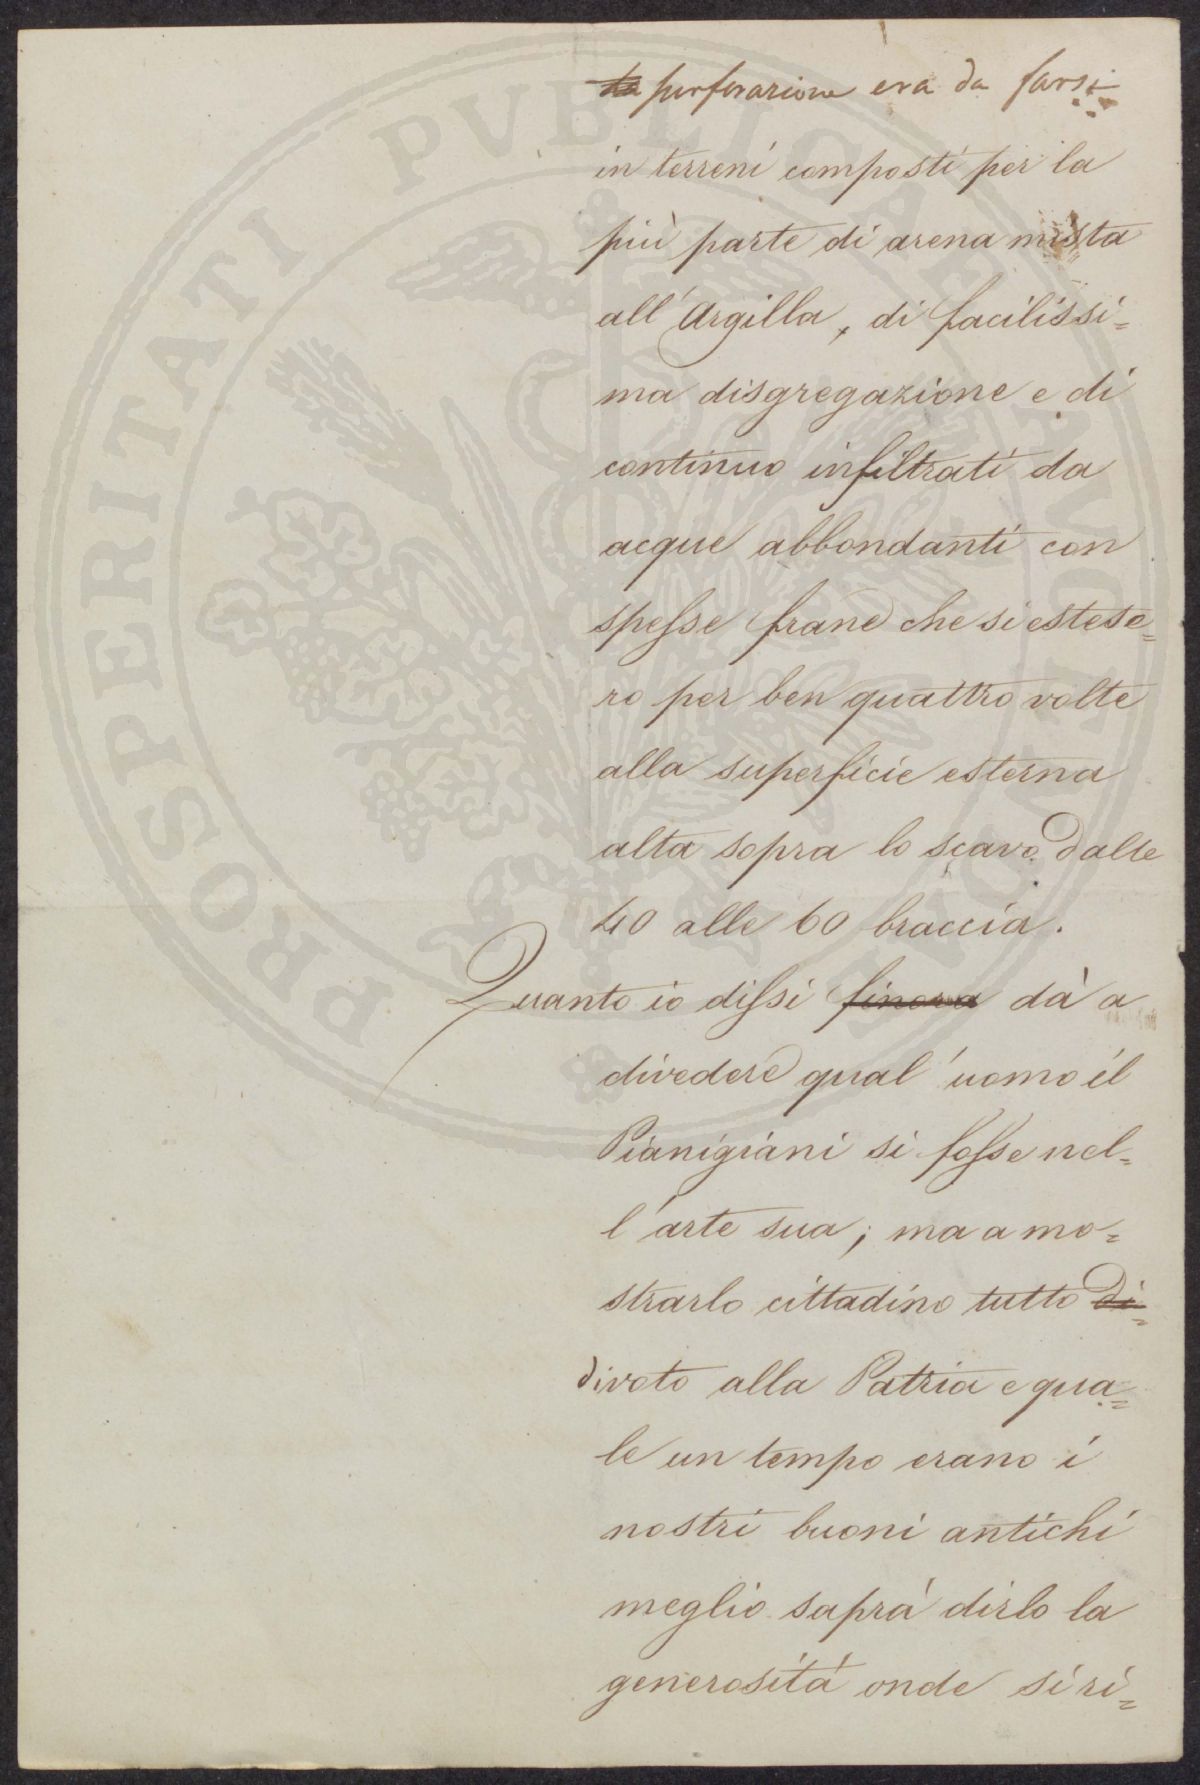 ~~la~~ perforazione era da farsi
in terreni composti per la
più parte di arena mista
all'Argilla, di facilissi=
ma disgregazione e di
continuo infiltrati da
acque abbondanti con
spesse frane che si estese=
ro per ben quattro volte
alla superficie esterna
alta sopra lo scavo dalle
40 alle 60 braccia.
Quanto io dissi ~~finora~~ dà a
divedere qual'uomo il
Pianigiani si fosse nel=
l'arte sua; ma a mo=
strarlo cittadino tutto ~~di=~~
divoto alla Patria e qua=
le un tempo erano i
nostri buoni antichi
meglio saprà dirlo la
generosità onde si ri=
PROSPERITATI PUBLICAE AUGENDAE